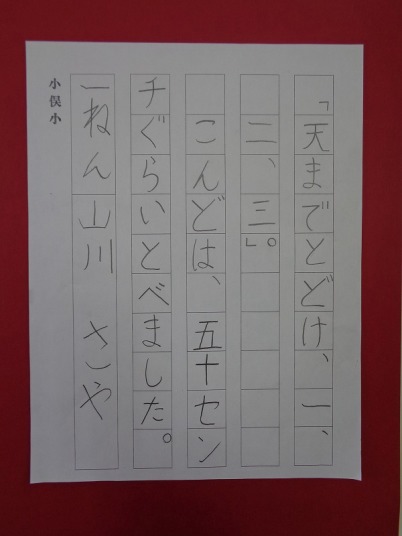 「天までとどけ、一、
二、三。」
こんどは、五十セン
チぐらいとべました。
一ねん 山川 さや
小俣小